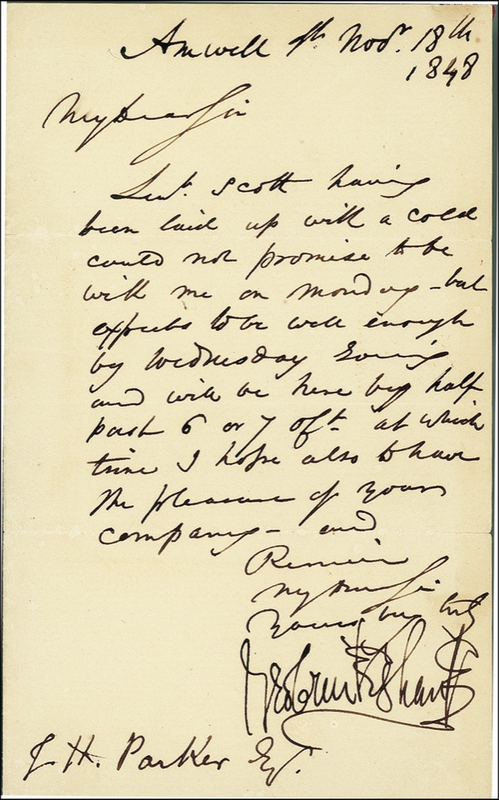 Amwell St. Novr. 18th
1848
My Dear Sir
Lieut. Scott having
been laid up with a cold
could not promise to be
with me on Monday - but
expects to be well enough
by Wednesday Evening
and will be here by half
past 6 or 7 oft. at which
time I hope also to have
the pleasure of your
company - and
Remain
My Dear Sir
Yours very truly
Geo Cruikshank
J. H. Parker Esq.